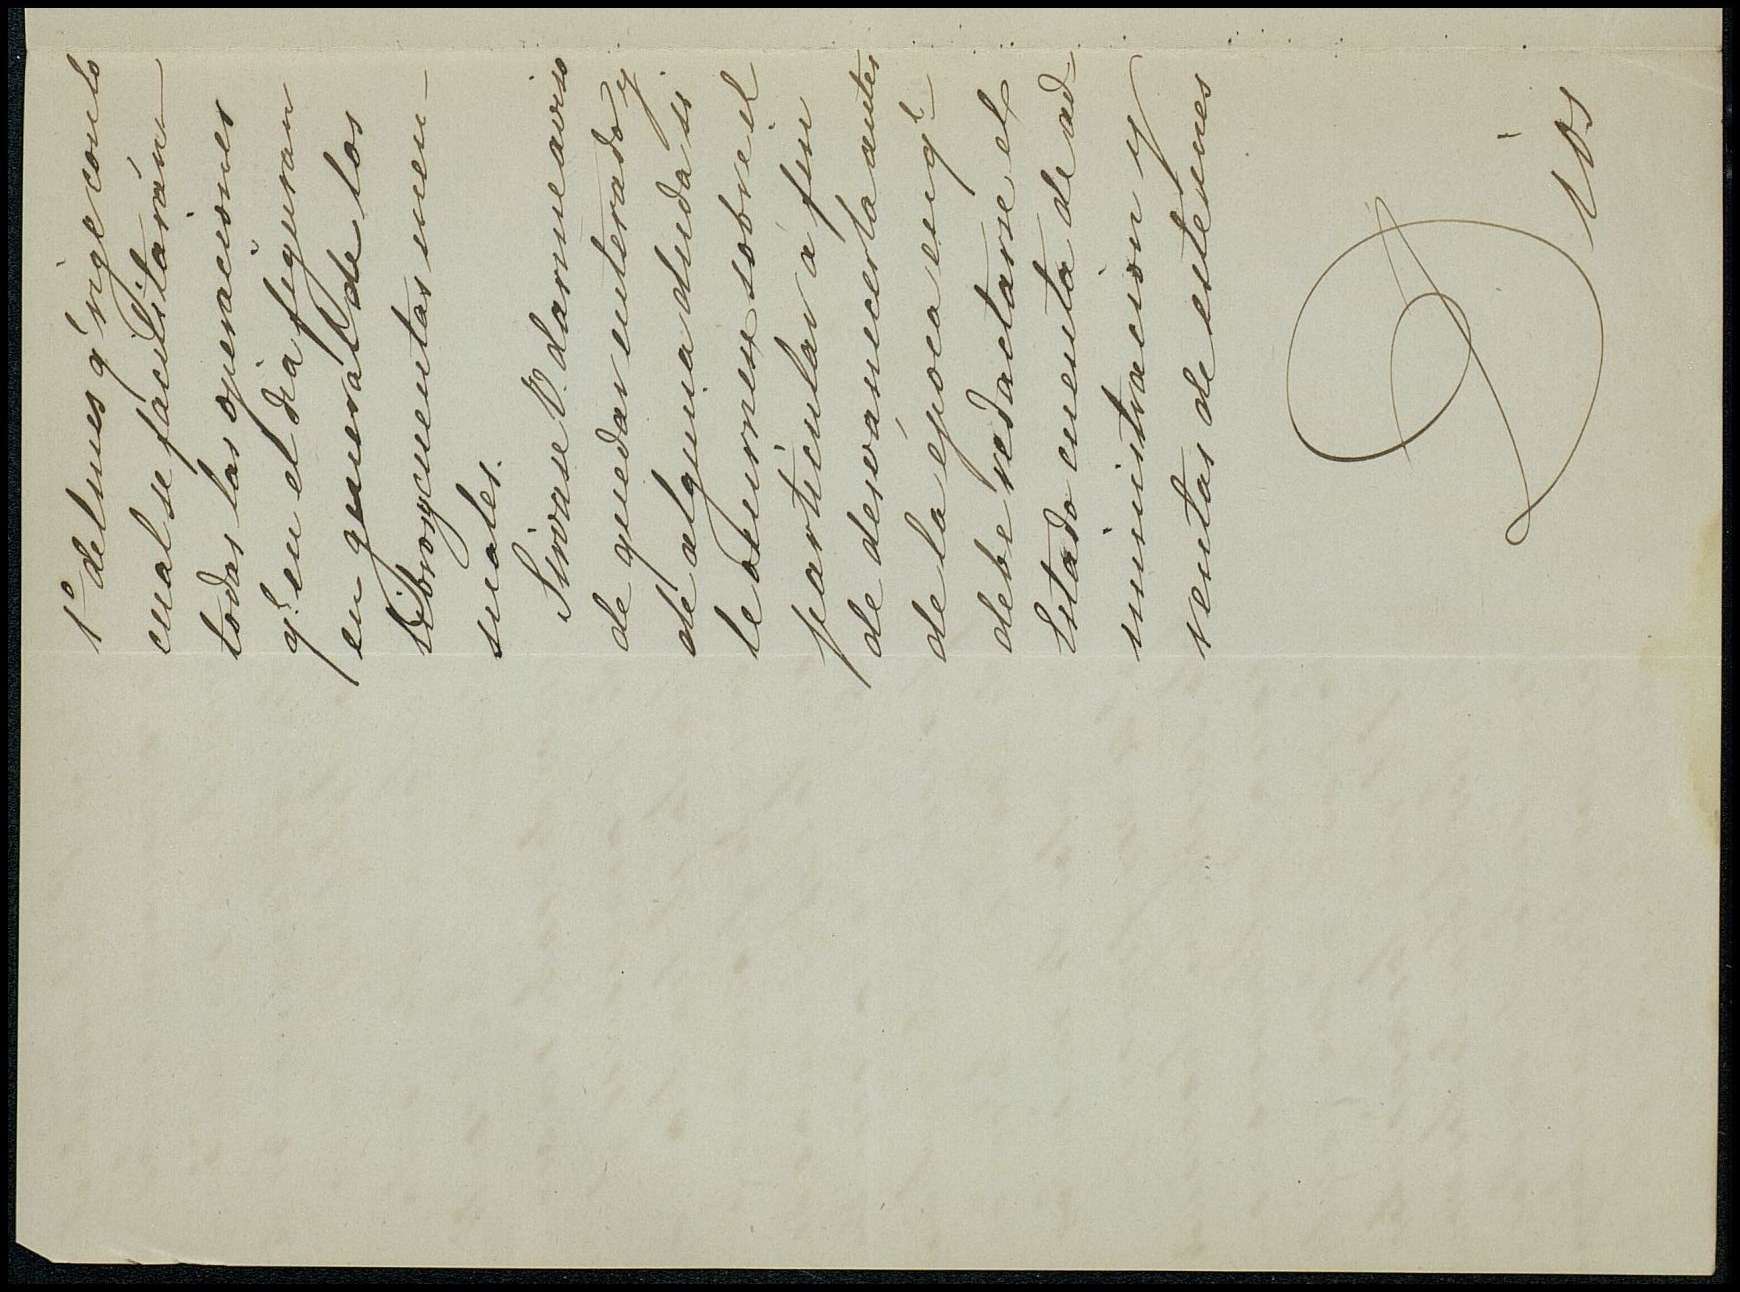 1º del mes q.e rige con lo
cual se facilitarán
todas las operaciones
q.e en el dia figuran
en general de los
Documentos men-
suales.
Sirvase V. darme aviso
de quedar enterado y
de alguna duda si
le ocurriese sobre el
particular á fin
de desvanecerla antes
de la epoca en q.e
debe redactarse el
Estado cuenta de ad-
ministracion y
rentas de este mes